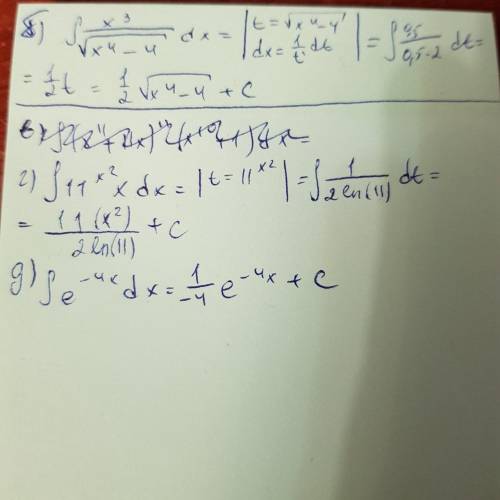 б) ∫ x³/√(x⁴-4) dx = | t = √(x⁴-4) dx = 1/t' dt | = ∫ 0,5/(0,5·2) dt =
= 1/2 t = 1/2 √(x⁴-4) + C
г) ∫ 11^(x²) x dx = | t = 11^(x²) | = ∫ 1/(2 ln(11)) dt =
= 11(x²)/(2 ln(11)) + C
д) ∫ e^(-4x) dx = 1/-4 e^(-4x) + C